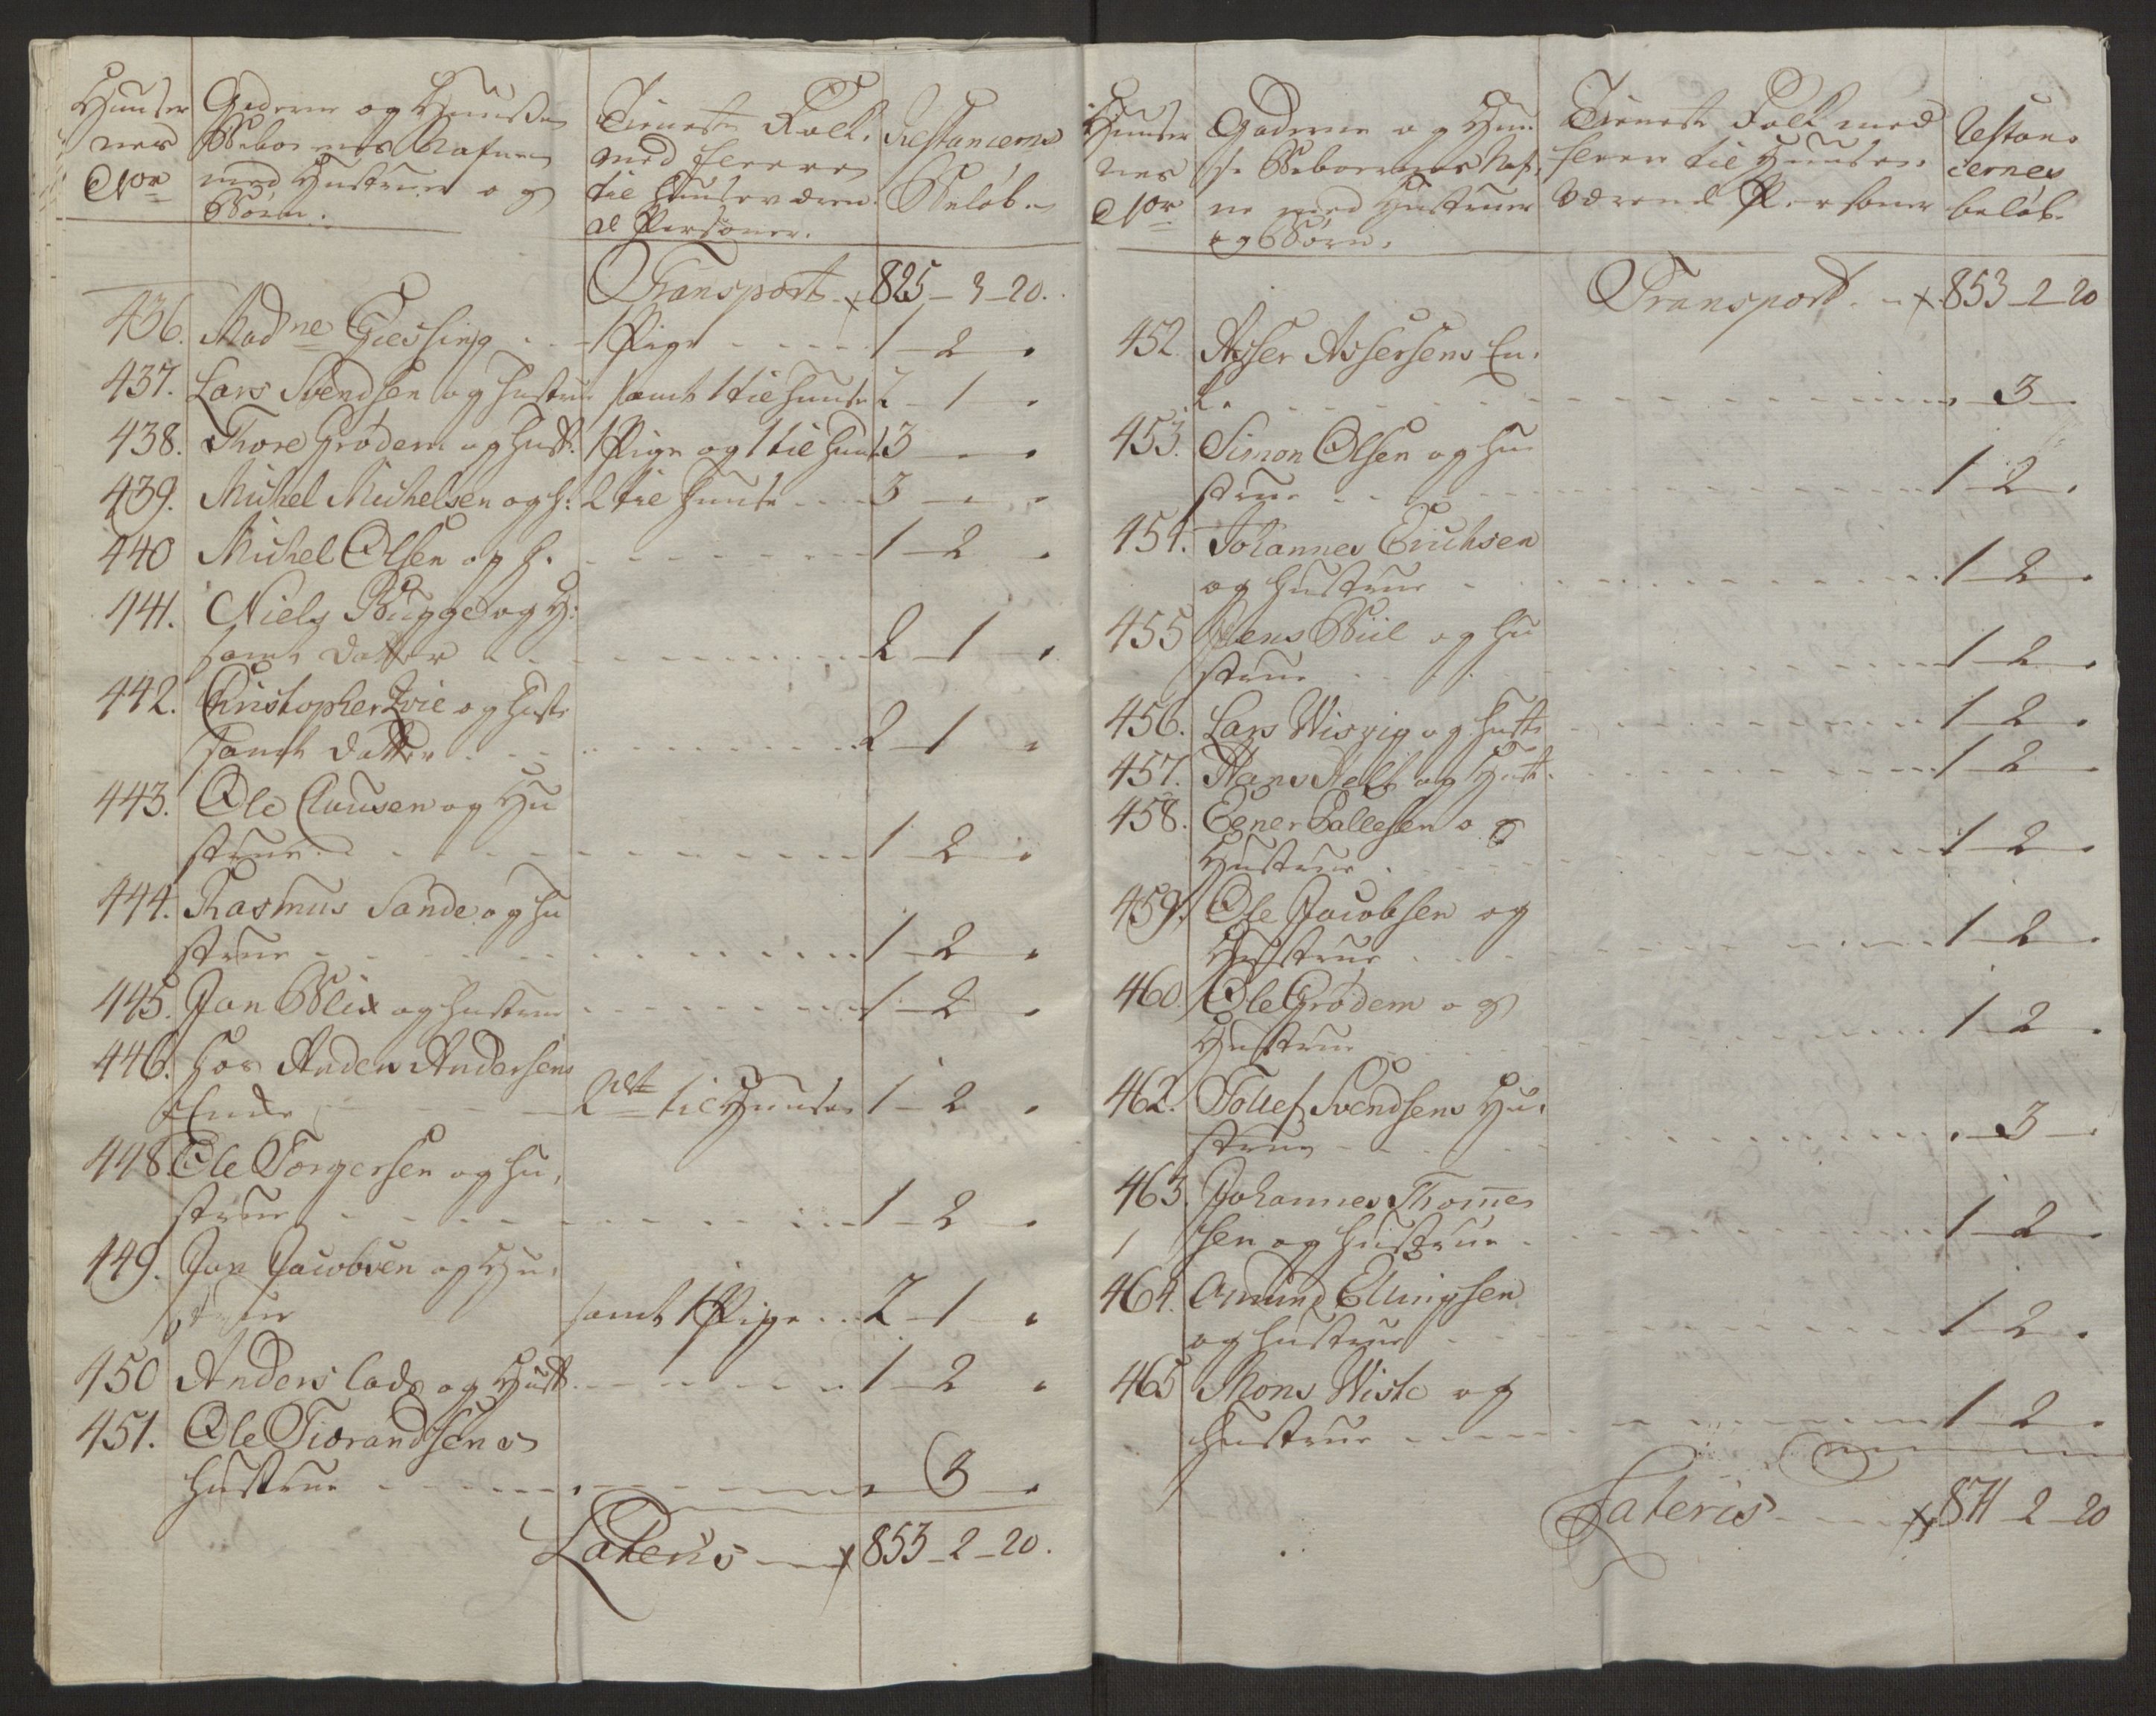 Huuser
nes
Nor
Gaderne og Huusenes
Beboernes Nafne
med Hustruer og
Børn.
Tieneste Folk
med fleere
til Huuse væren-
de Personer.
Restancernes
Beløb.
Transport 825 - 3 - 20.
436. Madne Giessing 1 Pige 1 - 2 .
437. Lars Svendsen og hustrue samt 1 til huuse 2 - 1 .
438. Thore Grødem og hust: 1 Pige og 1 til huus 3 - . .
439. Michel Michelsen og h: 2 til huuse 3 - . .
440 Michel Olsen og h. 1 - 2 .
441. Niels Bugge og H:
samt datter 2 - 1 .
442. Christopher Zvie og hust:
samt datter 2 - 1 .
443. Ole Clausen og Hu
strue 1 - 2 .
444. Rasmus Sande og hu
strue 1 - 2 .
445. Jan Blix og hustrue 1 - 2 .
446. hos Anders Andersens
Enke 2de til Huuse 1 - 2 .
448. Ole Torgersen og hu-
strue 1 - 2 .
449. Jan Jacobsen og Hu-
strue samt 1 Pige 2 - 1 .
450 Anders lade og Hust 1 - 2 .
451. Ole Tiorandsens
hustrue . 3 .
Lateris 853 - 2 - 20.
Huuser
nes
Nor
Gaderne og Huu-
se Beboernes Naf-
ne med Hustruer
og Børn.
Tieneste Folk med
fleere til Huuse
værende Personer
Restan-
cernes
beløb.
Transport 853 - 2 - 20
452. Asser Assersens En-
k. . 3 .
453. Simon Olsen og hu
strue 1 - 2 .
454. Johannes Erichsen
og hustrue 1 - 2 .
455 Jens Biil og hu
strue 1 - 2 .
456. Lars Wisvig og hust: 1 - 2 .
457. Hans Kolt og Hust 1 - 2 .
458. Eener Pallesen og
Hustrue 1 - 2 .
459. Ole Jacobsen og
Hustrue 1 - 2 .
460. Ole Grødem og
Hustrue 1 - 2 .
462. Tollef Svendsens Hu-
strue . 3 .
463. Johannes Thomes
1 sen og hustrue 1 - 2 .
464. Amund Ellingsen
og hustrue 1 - 2 .
465 Mons Wiste og
hustrue 1 - 2 .
Lateris 871 - 2 - 20